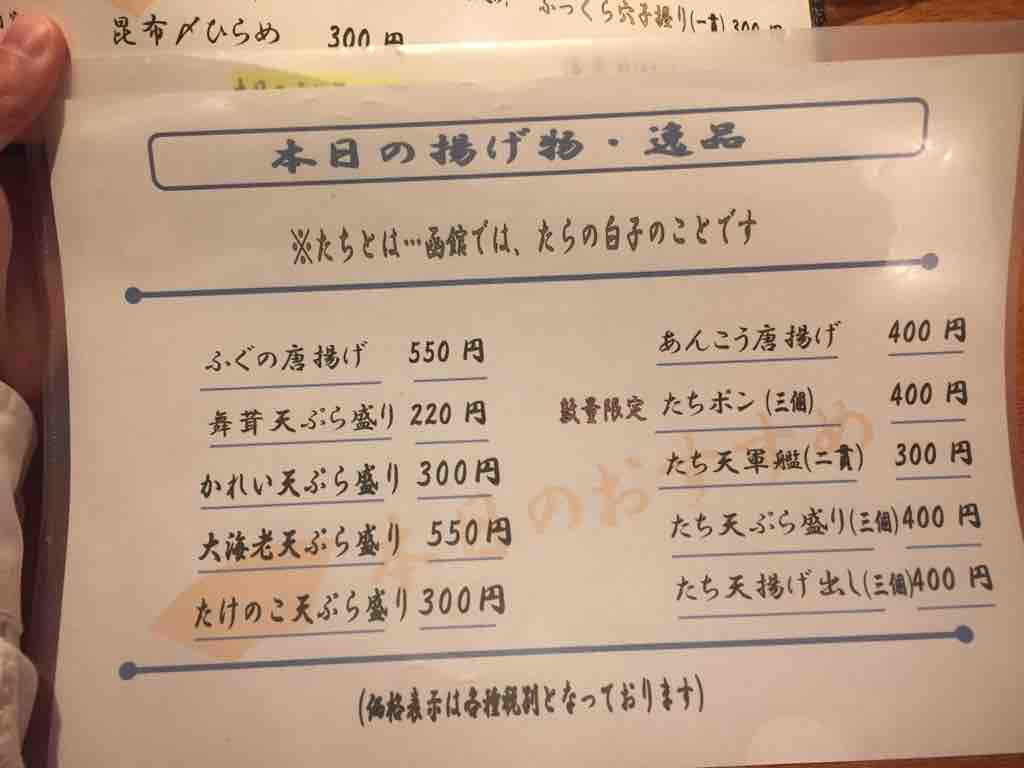 昆布〆ひらめ 300円
ふっくら穴子握り(一貫)300円
本日の揚げ物・逸品
※たちとは…函館では、たらの白子のことです
ふぐの唐揚げ 550円
舞茸天ぷら盛り 220円
かれい天ぷら盛り 300円
大海老天ぷら盛り 550円
たけのこ天ぷら盛り 300円
あんこう唐揚げ 400円
数量限定 たちポン(三個) 400円
たち天軍艦(二貫) 300円
たち天ぷら盛り(三個) 400円
たち天揚げ出し(三個) 400円
本日のおすすめ
(価格表示は各種税別となっております)